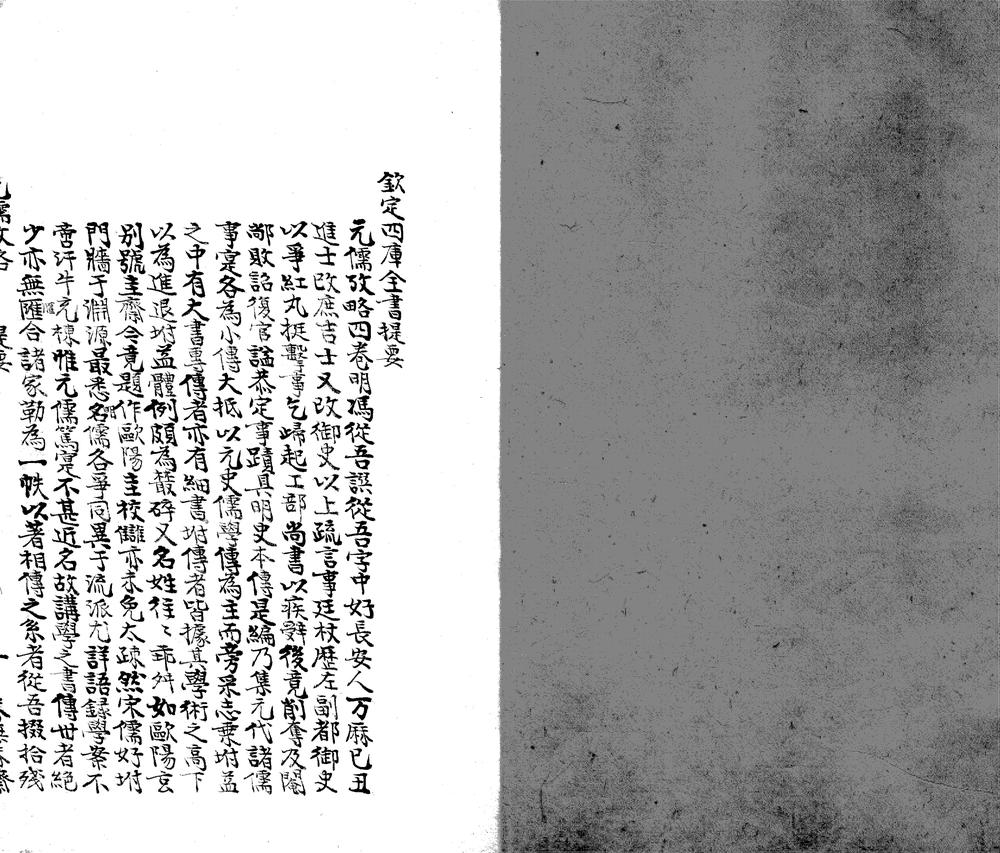 欽定四庫全書提要
元儒攷略四卷明馮從吾譔從吾字中好長安人万厤已丑
進士改庶吉士又改御史以上疏言事廷杖歴左副都御史
以爭紅丸挺擊事乞歸起工部尚書以疾辭後竟削奪及閹
鄣敗詔復官諡恭定事蹟具明史本傳是編乃集元代諸儒
事寔各為小傳大抵以元史儒學傳為主而旁采志乗坿益
之中有大書專傳者亦有細書坿傳者皆據其學術之高下
以為進退坿益體例頗為簤碎又名姓往〻乖舛如歐陽玄
别號圭齋今竟題作歐陽圭校讎亦未免太疎然宋儒好坿
門牆于淵源最悉名儒各爭同異于流派尤詳語錄學案不
啻汗牛充棟惟元儒篤寔不甚近名故講學之書傳世者絕
少亦無匯合諸家勒為一帙以著相傳之系者從吾掇拾殘
元儒攷略 提要 一